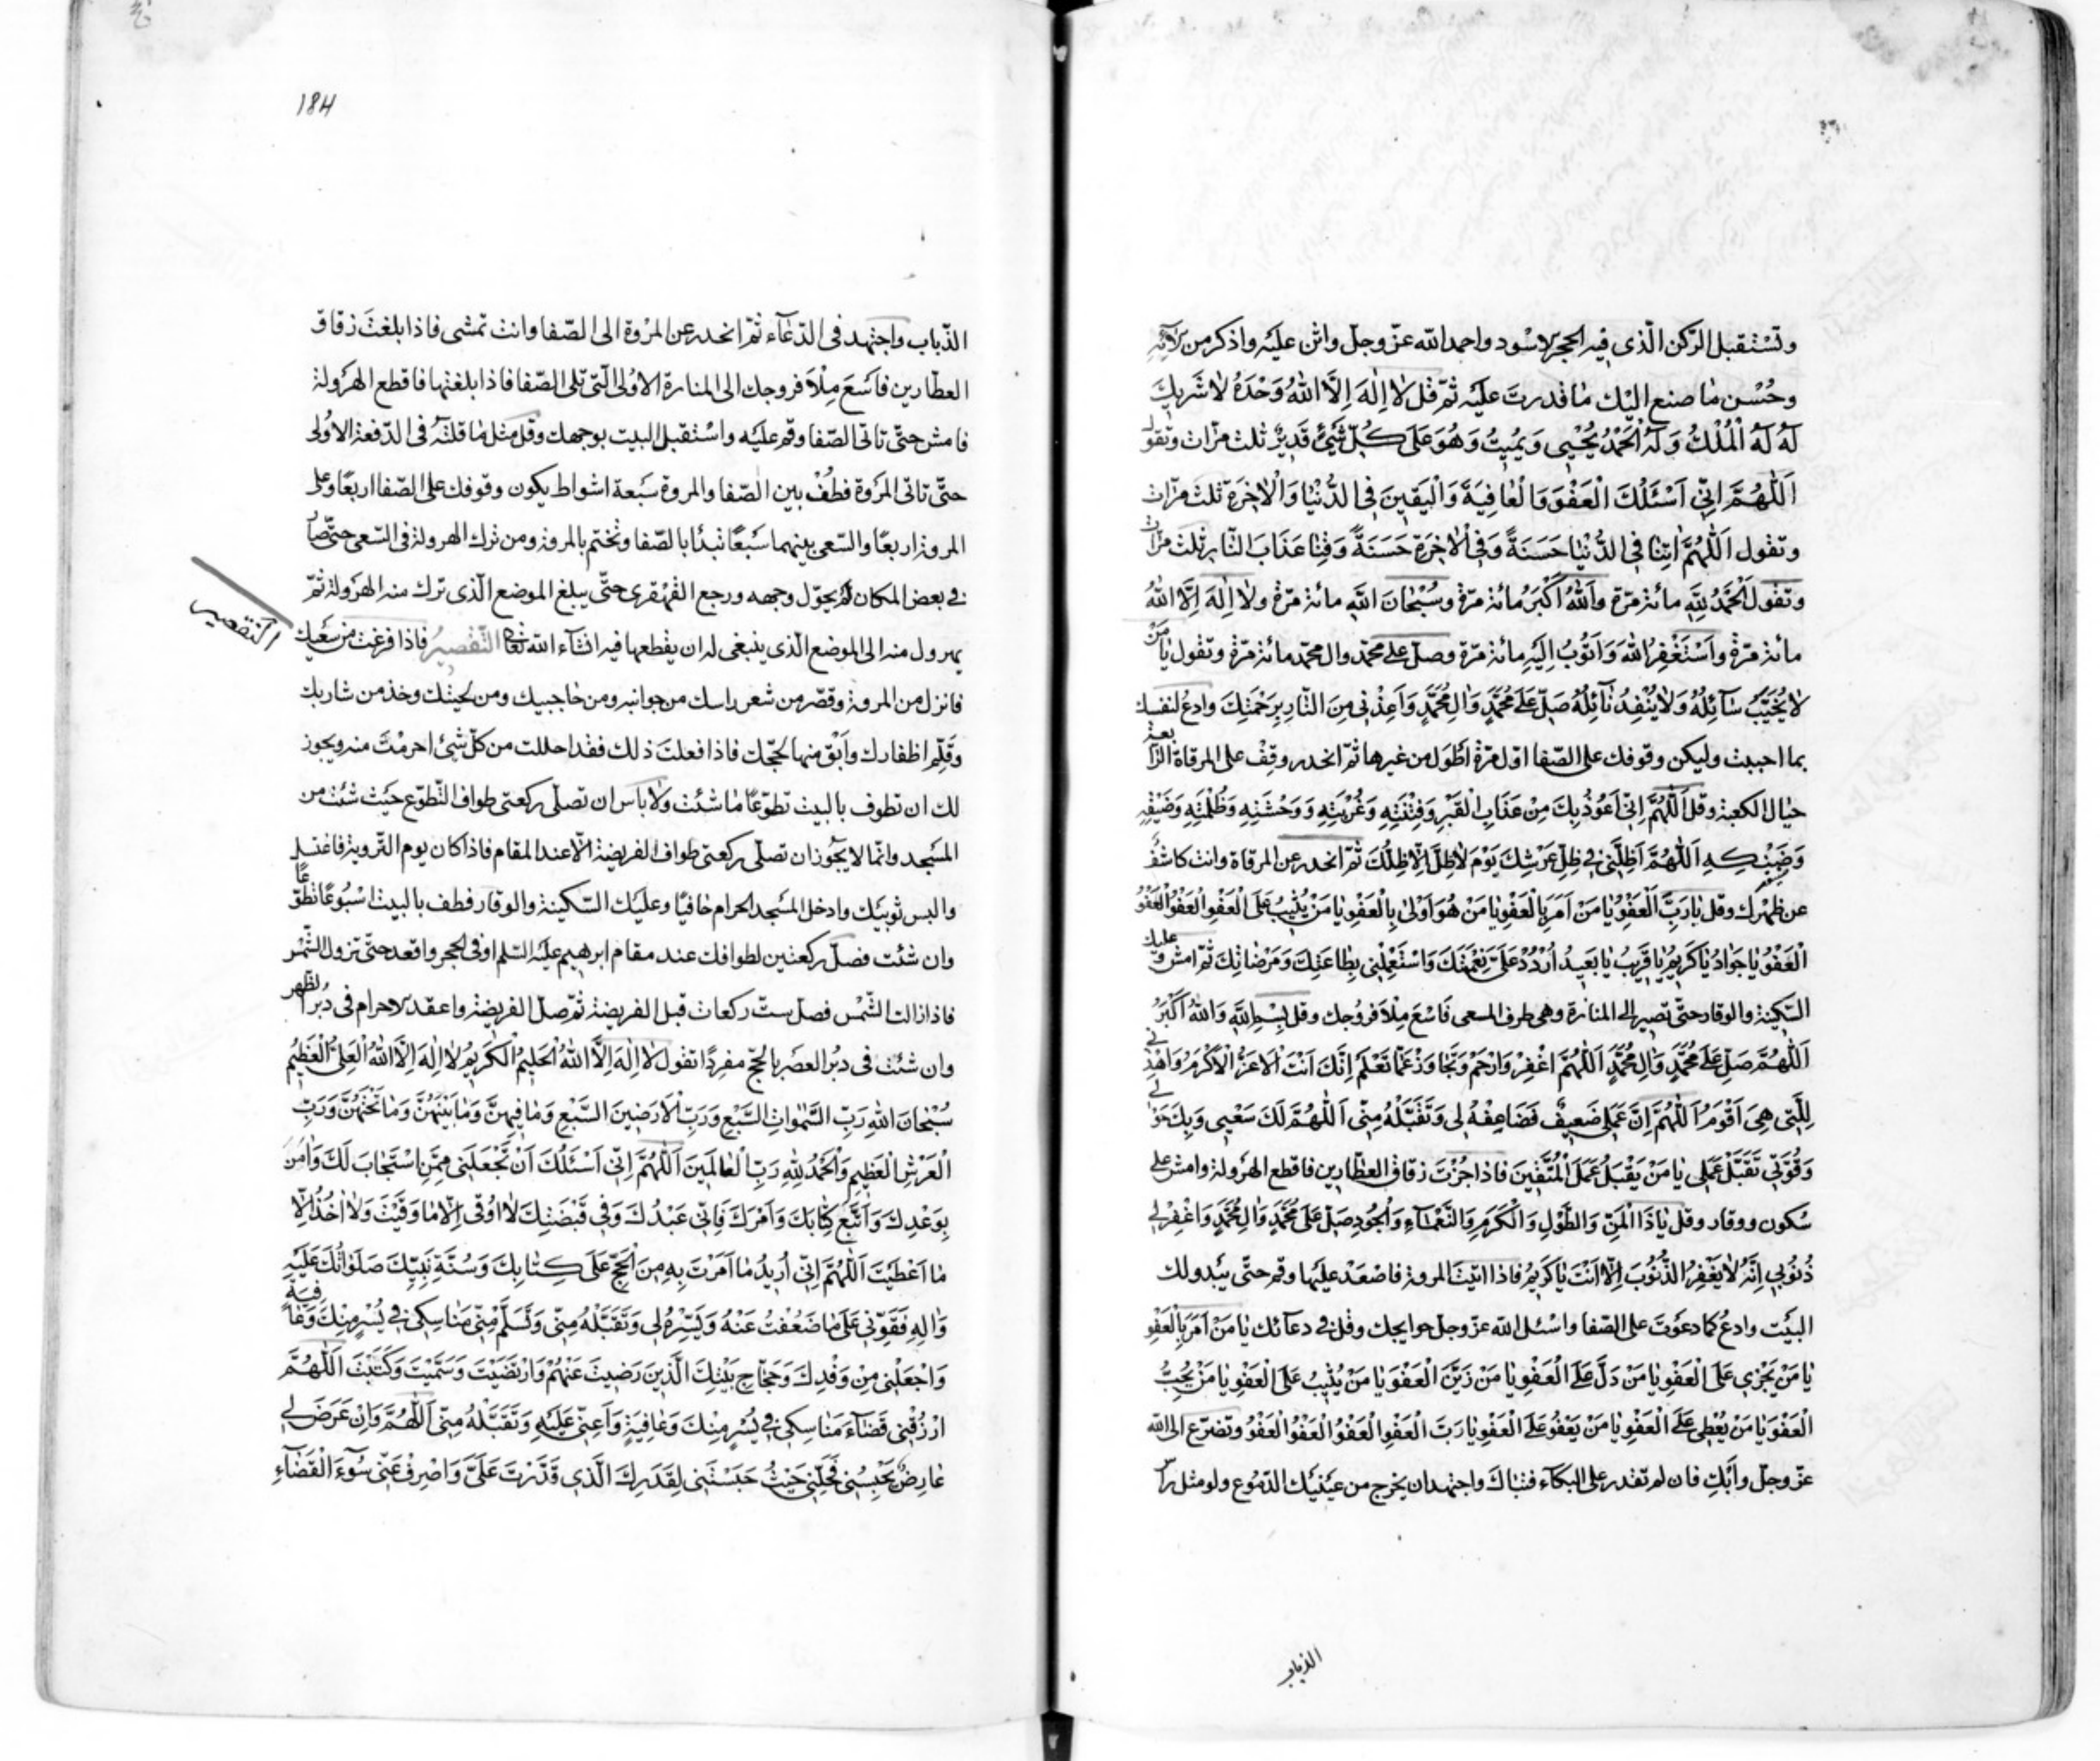 وتستقبل الرّكن الّذى فيه الحجر الاسود واحمد الله عزّ وجلّ واثن عليه واذكر من آلائه
وحُسْن ما صنع اليك ما قدرت عليه ثمّ قل لا اِلٰهَ اِلَّا اللهُ وَحْدَهُ لا شَريكَ
لَهُ لَهُ الْمُلْكُ وَلَهُ الْحَمْدُ يُحْيِى وَيُمِيتُ وَهُوَ عَلىٰ كُلِّ شَيْئٍ قَدِيرٌ ثلث مرّات وتقول
اَللّٰهُمَّ اِنِّى اَسْئَلُكَ الْعَفْوَ وَالْعٰافِيَةَ وَالْيَقِينَ فِى الدُّنْيٰا وَالْاٰخِرَةِ ثلث مرّات
وتقول اَللّٰهُمَّ اٰتِنٰا فِى الدُّنْيٰا حَسَنَةً وَفِى الْاٰخِرَةِ حَسَنَةً وَقِنٰا عَذٰابَ النّٰارِ ثلث مرّات
وتقول اَلْحَمْدُ لِلّٰهِ مائة مرّة وَاَللهُ اَكْبَرُ مائة مرّة وسُبْحٰانَ اللّٰهِ مائة مرّة ولا اِلٰهَ اِلَّا اللهُ
مائة مرّة واَسْتَغْفِرُ اللهَ وَاَتُوبُ اِلَيْهِ مائة مرّة وصلّ على محمّد وال محمّد مائة مرّة وتقول يٰا مَنْ
لا يُخَيِّبُ سٰآئِلُهُ وَلا يَنْفَدُ نٰآئِلُهُ صَلِّ عَلىٰ مُحَمَّدٍ وَاٰلِ مُحَمَّدٍ وَاَعِذْنِى مِنَ النّٰارِ بِرَحْمَتِكَ وادعُ لنفسك
بما احببت وليكن وقوفك على الصّفا اوّل مرّة اَطْوَل من غيرها ثمّ انحدر وقِفْ على المرقاة الرّابعة
حيٰال الكعبة وقل اَللّٰهُمَّ اِنِّى اَعُوذُ بِكَ مِنْ عَذٰابِ الْقَبْرِ وَفِتْنَتِهِ وَغُرْبَتِهِ وَوَحْشَتِهِ وَظُلْمَتِهِ وَضَيْقِهِ
وَضَنْكِهِ اَللّٰهُمَّ اَظِلَّنِى فِى ظِلِّ عَرْشِكَ يَوْمَ لا ظِلَّ اِلّٰا ظِلُّكَ ثمّ انحدر عن المرقاة وانت كاشف
عن ظهرك وقل يٰا رَبَّ الْعَفْوِ يٰا مَنْ اَمَرَ بِالْعَفْوِ يٰا مَنْ هُوَ اَوْلىٰ بِالْعَفْوِ يٰا مَنْ يُثِيبُ عَلَى الْعَفْوِ الْعَفْوَ الْعَفْوَ
الْعَفْوَ يٰا جَوٰادُ يٰا كَرِيمُ يٰا قَرِيبُ يٰا بَعِيدُ اُرْدُدْ عَلَىَّ نِعْمَتَكَ وَاسْتَعْمِلْنِى بِطٰاعَتِكَ وَمَرْضٰاتِكَ ثمّ امش وعليك
السّكينة والوقار حتّى تصير الى المنارة وهى طرف المسعى فاسْعَ مِلْأَ فروجك وقل بِسْمِ اللّٰهِ وَاللهُ اَكْبَرُ
اَللّٰهُمَّ صَلِّ عَلىٰ مُحَمَّدٍ وَاٰلِ مُحَمَّدٍ اَللّٰهُمَّ اغْفِرْ وَارْحَمْ وَتَجٰاوَزْ عَمّٰا تَعْلَمُ اِنَّكَ اَنْتَ الْاَعَزُّ الْاَكْرَمُ وَاهْدِنِى
لِلَّتِى هِىَ اَقْوَمُ اَللّٰهُمَّ اِنَّ عَمَلِى ضَعِيفٌ فَضٰاعِفْهُ لِى وَتَقَبَّلْهُ مِنِّى اَللّٰهُمَّ لَكَ سَعْيِى وَبِكَ حَوْلِى
وَقُوَّتِى تَقَبَّلْ عَمَلِى يٰا مَنْ يَقْبَلُ عَمَلَ الْمُتَّقِينَ فاذا جُزْتَ زقاق العطّارين فاقطع الهَرْوَلة وامش على
سُكون ووقار وقل يٰا ذَا الْمَنِّ وَالطَّوْلِ وَالْكَرَمِ وَالنَّعْمٰاءِ وَالْجُودِ صَلِّ عَلىٰ مُحَمَّدٍ وَاٰلِ مُحَمَّدٍ وَاغْفِرْ لِى
ذُنُوبِى اِنَّهُ لا يَغْفِرُ الذُّنُوبَ اِلّٰا اَنْتَ يٰا كَرِيمُ فاذا اتيْتَ المروة فاصْعَدْ عليها وقم حتّى يَبْدو لك
البيْت وادعُ كما دعوْتَ على الصّفا واسْئل الله عزّ وجلّ حوايجك وقل فى دعآئك يٰا مَنْ اَمَرَ بِالْعَفْوِ
يٰا مَنْ يَجْزِى عَلَى الْعَفْوِ يٰا مَنْ دَلَّ عَلَى الْعَفْوِ يٰا مَنْ زَيَّنَ الْعَفْوَ يٰا مَنْ يُثِيبُ عَلَى الْعَفْوِ يٰا مَنْ يُحِبُّ
الْعَفْوَ يٰا مَنْ يُعْطِى عَلَى الْعَفْوِ يٰا مَنْ يَعْفُو عَلَى الْعَفْوِ يٰا رَبَّ الْعَفْوِ الْعَفْوَ الْعَفْوَ الْعَفْوَ وتضرّع الى الله
عزّ وجلّ واَبْكِ فان لم تقدر على البكآء فتباكَ واجتهد ان يخرج من عينيْك الدّموع ولو مثل رأس
الذباب
184
الذّباب واجتهد فى الدّعآء ثمّ انحدر عن المرْوة الى الصّفا وانت تمشى فاذا بلغتَ زقاق
العطّارين فاَسْعَ مِلْأَ فروجك الى المنارة الاوُلى الّتى تلى الصّفا فاذا بلغتها فاقطع الهَرْولة
فامش حتّى تاتى الصّفا وقم عليه واسْتقبل البيت بوجهك وقل مثل ما قلتَهُ فى الدّفعة الاوُلى
حتّى تاتى المرْوة فطُفْ بين الصّفا والمروة سَبعة اشواط يكون وقوفك على الصّفا اربعًا وعلى
المروة اربعًا والسّعى بينهما سَبْعًا تبدأ بالصّفا وتختم بالمروة ومن ترك الهرولة فى السّعى حتّى صار
فى بعض المكان لم يحوّل وجهه ورجع القهقرى حتّى يبلغ الموضع الّذى ترك منه الهرولة ثمّ
يهرول منه الى الموضع الّذى ينبغى له ان يقطعها فيه انشآء الله تعالى التّقصِيرُ فاذا فرغت من سَعْيك
التقصير
فانزل من المروة وقصّر من شعر راسك من جوانبه ومن حاجبيك ومن لحيتك وخذ من شاربك
وقَلِّم اظفارك واَبْقِ منها لحجّك فاذا فعلتَ ذلك فقد احللت من كلّ شئ احرمْتَ منه ويجوز
لك ان تطوف بالبيت تطوّعًا ما شئت ولا باس ان تصلّى ركعتى طواف التّطوّع حيث شئت من
المسجد وانّما لا يجُوز ان تصلّى ركعتى طواف الفريضة الّا عند المقام فاذا كان يوم التّروية فاغتسل
والبس ثوبيْك وادخل المسْجد الحرام حافيًا وعليك السّكينة والوقار فطف بالبيت اسْبُوعًا تطوّعًا
وان شئت فصلّ ركعتين لطوافك عند مقام ابرهيم عليه السّلم او فى الحجر واقعد حتّى تزول الشّمْس
فاذا زالت الشّمْس فصلّ ستّ ركعات قبل الفريضة ثمّ صلّ الفريضة واعقد الاحرام فى دُبُر الظّهر
وان شئت فى دبُر العصر بالحجّ مفردًا تقول لا اِلٰهَ اِلَّا اللهُ الْحَلِيمُ الْكَرِيمُ لا اِلٰهَ اِلَّا اللهُ الْعَلِىُّ الْعَظِيمُ
سُبْحٰانَ اللّٰهِ رَبِّ السَّمٰوٰاتِ السَّبْعِ وَرَبِّ الْاَرَضِينَ السَّبْعِ وَمٰا فِيهِنَّ وَمٰا بَيْنَهُنَّ وَمٰا تَحْتَهُنَّ وَرَبِّ
الْعَرْشِ الْعَظِيمِ وَالْحَمْدُ لِلّٰهِ رَبِّ الْعٰالَمِينَ اَللّٰهُمَّ اِنِّى اَسْئَلُكَ اَنْ تَجْعَلَنِى مِمَّنِ اسْتَجٰابَ لَكَ وَاٰمَنَ
بِوَعْدِكَ وَاتَّبَعَ كِتٰابَكَ وَاَمْرَكَ فَاِنِّى عَبْدُكَ وَفِى قَبْضَتِكَ لا اُوقىٰ اِلّٰا مٰا وَقَيْتَ وَلا اٰخُذُ اِلّٰا
مٰا اَعْطَيْتَ اَللّٰهُمَّ اِنِّى اُرِيدُ مٰا اَمَرْتَ بِهِ مِنَ الْحَجِّ عَلىٰ كِتٰابِكَ وَسُنَّةِ نَبِيِّكَ صَلَوٰاتُكَ عَلَيْهِ
وَاٰلِهِ فَقَوِّنِى عَلىٰ مٰا ضَعُفْتُ عَنْهُ وَيَسِّرْهُ لِى وَتَقَبَّلْهُ مِنِّى وَتَسَلَّمْ مِنِّى مَنٰاسِكِى فِى يُسْرٍ مِنْكَ وَعٰافِيَةٍ
وَاجْعَلْنِى مِنْ وَفْدِكَ وَحُجّٰاجِ بَيْتِكَ الَّذِينَ رَضِيتَ عَنْهُمْ وَارْتَضَيْتَ وَسَمَّيْتَ وَكَتَبْتَ اَللّٰهُمَّ
ارْزُقْنِى قَضٰآءَ مَنٰاسِكِى فِى يُسْرٍ مِنْكَ وَعٰافِيَةٍ وَاَعِنِّى عَلَيْهِ وَتَقَبَّلْهُ مِنِّى اَللّٰهُمَّ وَاِنْ عَرَضَ لِى
عٰارِضٌ يَحْبِسُنِى فَحُلَّنِى حَيْثُ حَبَسْتَنِى لِقَدَرِكَ الَّذِى قَدَّرْتَ عَلَىَّ وَاصْرِفْ عَنِّى سُوٓءَ الْقَضٰآءِ